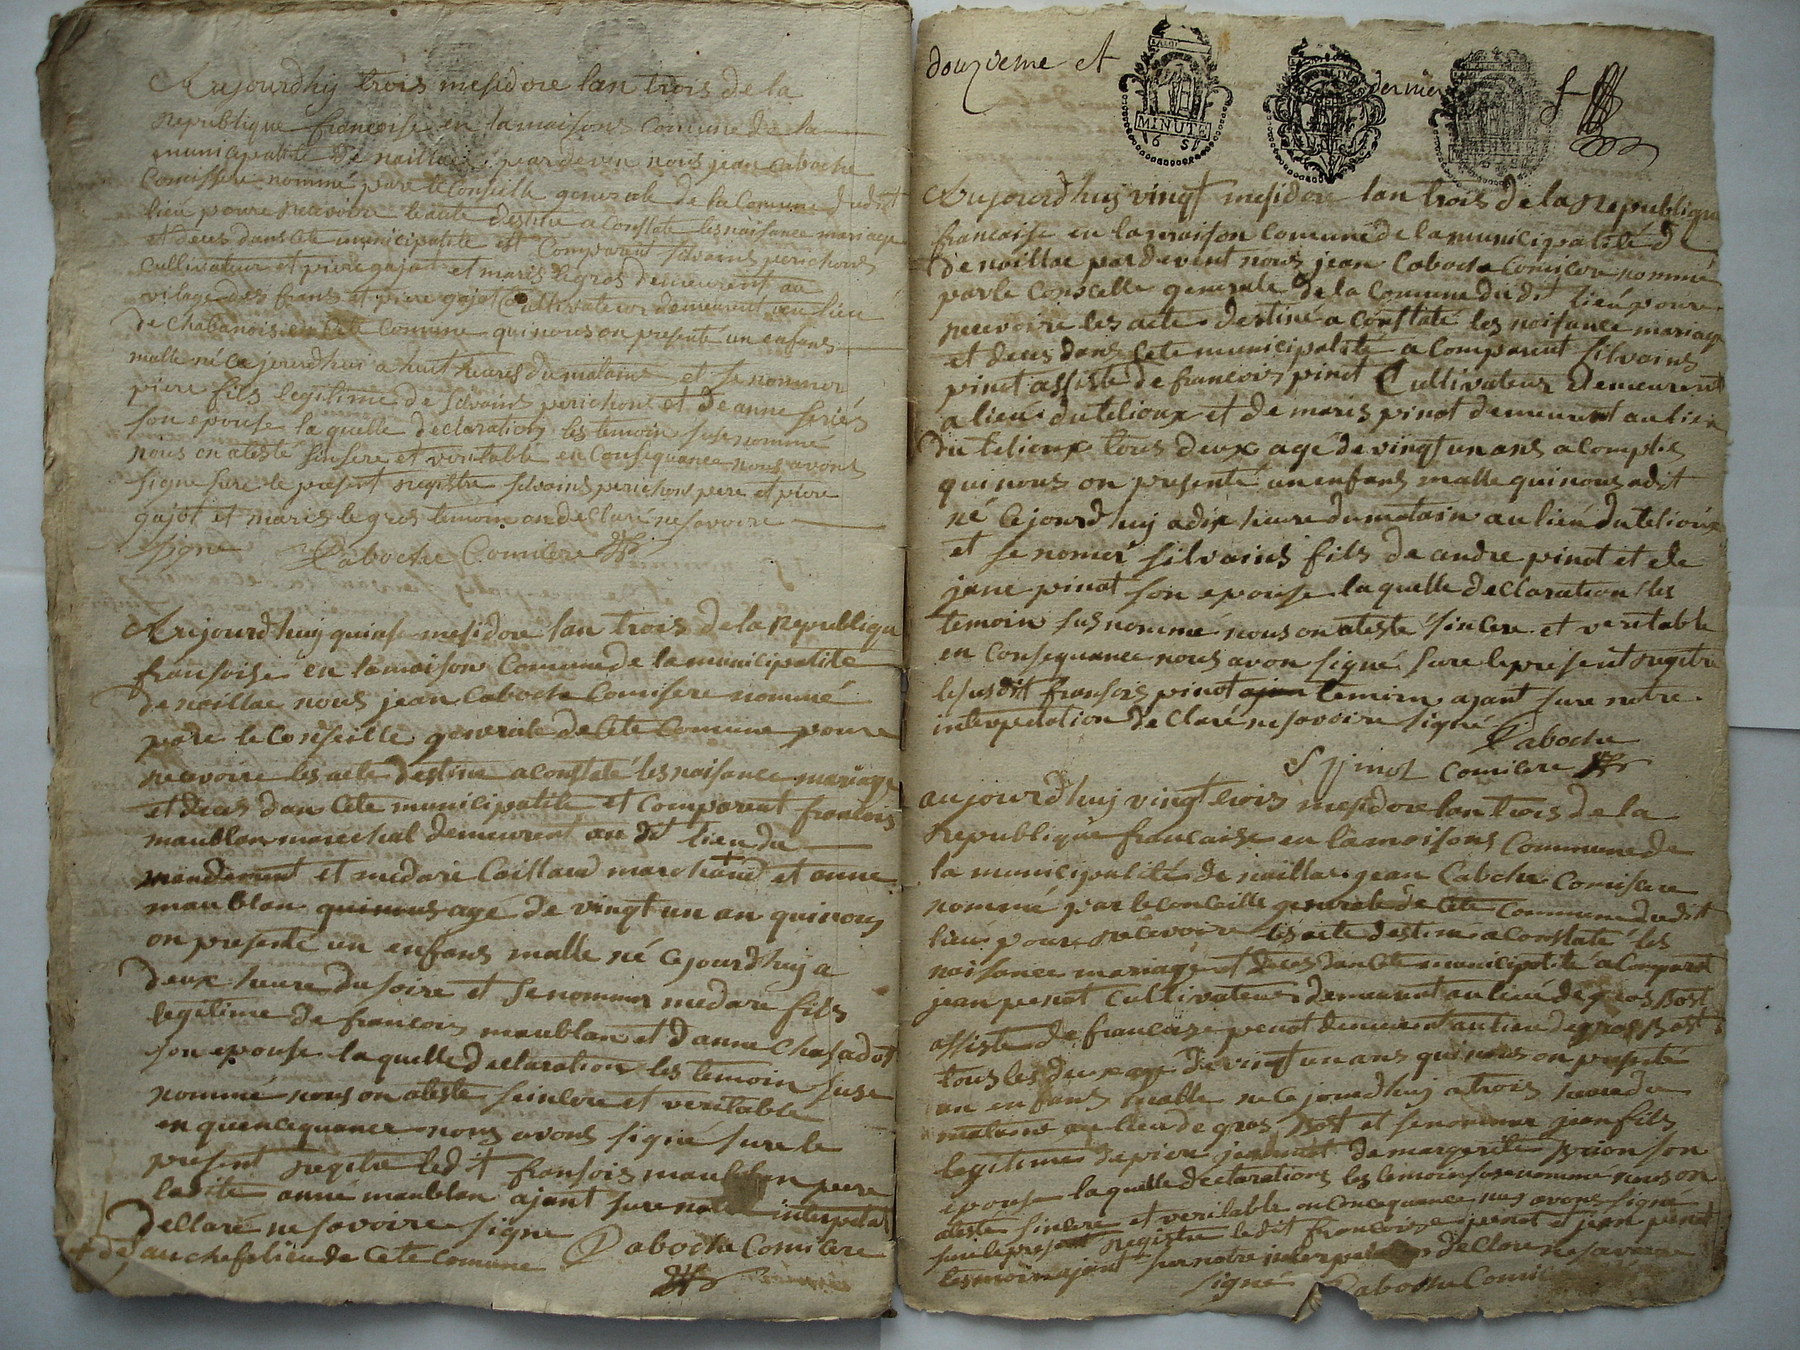 Aujourdhy trois mesidore lan trois de la
republique francoise en lamaison Comune de la
municipalité de naillac pardeven nous jean Caboche
Comissere nommé pare le Conseille generale de la Comune dudit
lieu poure recevoire leacte destine a Constate les naisance mariage
et deces dans Cete municipalite est Comparait silvains perichons
Cultivateur et piere gajot et maris legros demeurent au
vilage des frans et piere gajot Cultivateur demeurent au lieu
de Chabanois en Cete Comune qui nous on presenté un enfans
malle né ce jourdhui a huit heures du matains et se nommer
piere fils legitime de silvains perichons et de anne feriés
son epouse la quelle declaration les temoin suse nommé
nous on ateste sinsere et veritable en Consequance nous avons
signe sure le present registre silvains perichons pere et piere
gajot et maris legros temoin on declaré ne savoire
signe Caboche Comisere
Aujourdhuy quinse mesidore lan trois de la republique
fransoise en lamaison Comune de la municipalite
de naillac nous jean Caboche Comisere nommé
pare le Conseille generale de Cete Comune poure
recevoire les acte destine a constaté les naisance mariage
et deces dan Cete municipalite et Comparent francois
maublan marechal demeurent au dit lieu du
mandement et medare Caillaud marchand et anne
maublan agé de vingt un an qui nous
on presenté un enfans malle né ce jourdhuy a
deux heure du soire et se nommer medare fils
legitime de francois maublan et danne Chasadot
son epouse la quelle declaration les temoin suse
nommé nous on ateste seincere et veritable
en quencequance nous avons signé sure le
present registre ledit fransois maublan pere
ladite anne maublan ajant sure interpelat
declaré ne savoire signe
+ dy au cheflieu de Cete Comune Caboche Comisere
douzieme et dernier
MINUTE
6 S.
Aujourdhuy vingt mesidore lan trois de la republique
francaise en la maison Comune de la municipalité de
de naillac pardevent nous jean Caboche Comicere nommé
par le Conseille generale de la Comune dudit lieu poure
recevoire les acte destiné a constaté les naisance mariage
et deces dans Cete municipalité a Comparent silvains
pinot assiste de francois pinot Cultivateur demeurent
a lieu du telioux et de maris pinot demeurent au lieu
du telioux tous deux agé de vingt un ans acomplis
qui nous on presenté un enfans malle qui nous adit
né Cejourdhuy a dix heure du matain au lieu du telioux
et se nomer silvains fils de andre pinot et de
jane pinot son epouse la quelle declaration les
temoin susnommé nous on atesté sincere et veritable
en Consequance nous avon signé sure lepresent registre
le susdit fransois pinot temoin ajant sure notre
interpelation declaré ne savoire signé
Caboche
S pinot Comicere
aujourdhuy vingt trois mesidore lan trois de la
Republique francaise en la maisons Commune de
la municipalité de naillac jean Caboche Comisere
nommé par le conceille generale de Cete Commune dudit
lieu poure recevoire les acte destine a constaté les
naisance mariage et deces dan Cete municipalité a Comparet
jean penot cultivateur demeurent au lieu de gros Bost
assiste de francoise penot demeurent au lieu de gros Bost
tous les deux agé de vingt un ans qui nous on presenté
un enfans malle ne ce jourdhuy a trois heure du
matains au lieu de gros Bost et se nommer jean fils
legitime de piere et de margerite son
epouse la quelle declarations les temoin susenommé nous on
ateste sincere et veritable en concequance nous avons signé
sure le present registre ledit francoise penot et jean penot
temoins ajant sure notre declare ne savoire
signé Caboche